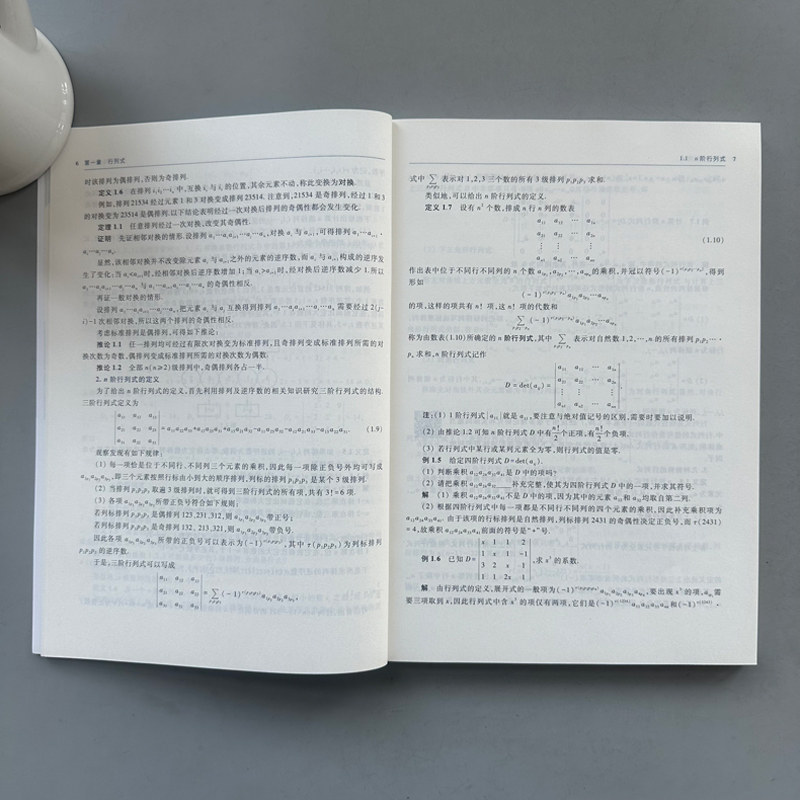 6 第一章 行列式
时该排列为偶排列,否则为奇排列.
定义1.6 在排列 i₁i₂⋯iₙ 中,互换 与 的位置,其余元素不动,称此变换为对换.
例如,排列21534经过元素1和3对换变成排列23514. 注意到,21534是奇排列,经过1和3
的对换变为23514是偶排列. 以下结论表明经过一次对换后排列的奇偶性都会发生变化.
定理1.1 任意排列经过一次对换,改变其奇偶性.
证明 先证相邻对换的情形. 设排列
显然,该相邻对换并不改变除元素 与 之外的元素的逆序数,而 与 构成的逆序发
生了变化:当 时,经相邻对换后逆序数增加1;当 时,经对换后逆序数减少1. 所以
的奇偶性相反.
再证一般对换的情形.
设排列 ,把元素 与 互换得到排列 需要经过2(j-
i)-1次相邻对换,所以这两个排列的奇偶性相反.
考虑标准排列是偶排列,可得如下推论:
推论1.1 任一排列均可经过有限次对换变为标准排列,且奇排列变成标准排列所需的对
换次数为奇数,偶排列变成标准排列所需的对换次数为偶数.
推论1.2 全部n(n≥2)级排列中,奇偶排列各占一半.
2. n阶行列式的定义
为了给出n阶行列式的定义,首先利用排列及逆序数的相关知识研究三阶行列式的结构.
三阶行列式定义为
| a₁₁ a₁₂ a₁₃ |
| a₂₁ a₂₂ a₂₃ | = a₁₁a₂₂a₃₃+a₁₂a₂₃a₃₁+a₁₃a₂₁a₃₂-a₁₁a₂₃a₃₂-a₁₂a₂₁a₃₃-a₁₃a₂₂a₃₁. (1.9)
| a₃₁ a₃₂ a₃₃ |
观察发现有如下规律:
(1) 每一项恰是位于不同行、不同列三个元素的乘积,因此每一项除正负号外均可写成
a₁ₚ₁a₂ₚ₂a₃ₚ₃,即三个元素按照行标由小到大的顺序排列,列标的排列p₁p₂p₃是某个3级排列.
(2) 当排列p₁p₂p₃取遍3级排列时,就可得到三阶行列式的所有项,共有3!=6项.
(3) 各项a₁ₚ₁a₂ₚ₂a₃ₚ₃所带正负号符合如下规则:
若列标排列p₁p₂p₃是偶排列123,231,312,则a₁ₚ₁a₂ₚ₂a₃ₚ₃带正号;
若列标排列p₁p₂p₃是奇排列132,213,321,则a₁ₚ₁a₂ₚ₂a₃ₚ₃带负号.
因此各项a₁ₚ₁a₂ₚ₂a₃ₚ₃所带的正负号可以表示为(-1)^τ(p₁p₂p₃),其中τ(p₁p₂p₃)为列标排列
p₁p₂p₃的逆序数.
于是,三阶行列式可以写成
| a₁₁ a₁₂ a₁₃ |
| a₂₁ a₂₂ a₂₃ | = ∑ (-1)^τ(p₁p₂p₃) a₁ₚ₁a₂ₚ₂a₃ₚ₃,
| a₃₁ a₃₂ a₃₃ |
n阶行列式 7
式中 ∑ 表示对1,2,3三个数的所有3级排列p₁p₂p₃求和.
类似地,可以给出n阶行列式的定义.
定义1.7 设有n²个数,排成n行n列的数表
a₁₁ a₁₂ ⋯ a₁ₙ
a₂₁ a₂₂ ⋯ a₂ₙ
⋮ ⋮ ⋮ (1.10)
aₙ₁ aₙ₂ ⋯ aₙₙ
作出表中位于不同行不同列的n个数a₁ₚ₁,a₂ₚ₂,⋯,aₙₚₙ的乘积,并冠以符号(-1)^τ(p₁p₂⋯pₙ),得到
形如
(-1)^τ(p₁p₂⋯pₙ) a₁ₚ₁a₂ₚ₂⋯aₙₚₙ
的项,这样的项共有n!项,这n!项的代数和
∑ (-1)^τ(p₁p₂⋯pₙ) a₁ₚ₁a₂ₚ₂⋯aₙₚₙ
称为由数表(1.10)所确定的n阶行列式,其中 ∑ 表示对自然数1,2,⋯,n的所有排列p₁p₂⋯
pₙ求和,n阶行列式记作
| a₁₁ a₁₂ ⋯ a₁ₙ |
D=det(aᵢⱼ)= | a₂₁ a₂₂ ⋯ a₂ₙ |
| ⋮ ⋮ ⋮ |
| aₙ₁ aₙ₂ ⋯ aₙₙ |.
注:(1) 1阶行列式|a₁₁|就是a₁₁,要注意与绝对值记号的区别,需要时要加以说明.
(2) 由推论1.2可知n阶行列式D中有n!/2个正项,有n!/2个负项.
(3) 若行列式中某行或某列元素全为零,则行列式的值是零.
例1.5 给定四阶行列式D=det(aᵢⱼ).
(1) 判断乘积 是D中的项吗?
(2) 请把乘积 ____补充完整,使其为四阶行列式D中的一项,并求其符号.
解 (1) 乘积 不是D中的项,因为其中的元素 和 均取自第二列.
(2) 根据四阶行列式中每一项都是不同行不同列的四个元素的乘积,因此补充乘积项为
. 由于该项的行标排列是自然排列,列标排列2431的奇偶性决定正负号,而τ(2431)
=4,故乘积 前面的符号是“+”号.
| x 1 1 2 |
例1.6 已知D= | 1 x 1 -1 |,求x³的系数.
| 3 2 x 1 |
| 1 1 2x 1 |
解 由行列式的定义,展开式的一般项为 ,要出现x³的项, 需
要三项取到x,因此行列式中含x³的项仅有两项,它们是(-1)^τ(1234) a₁₁a₂₂a₃₃a₄₄和(-1)^τ(1243) .